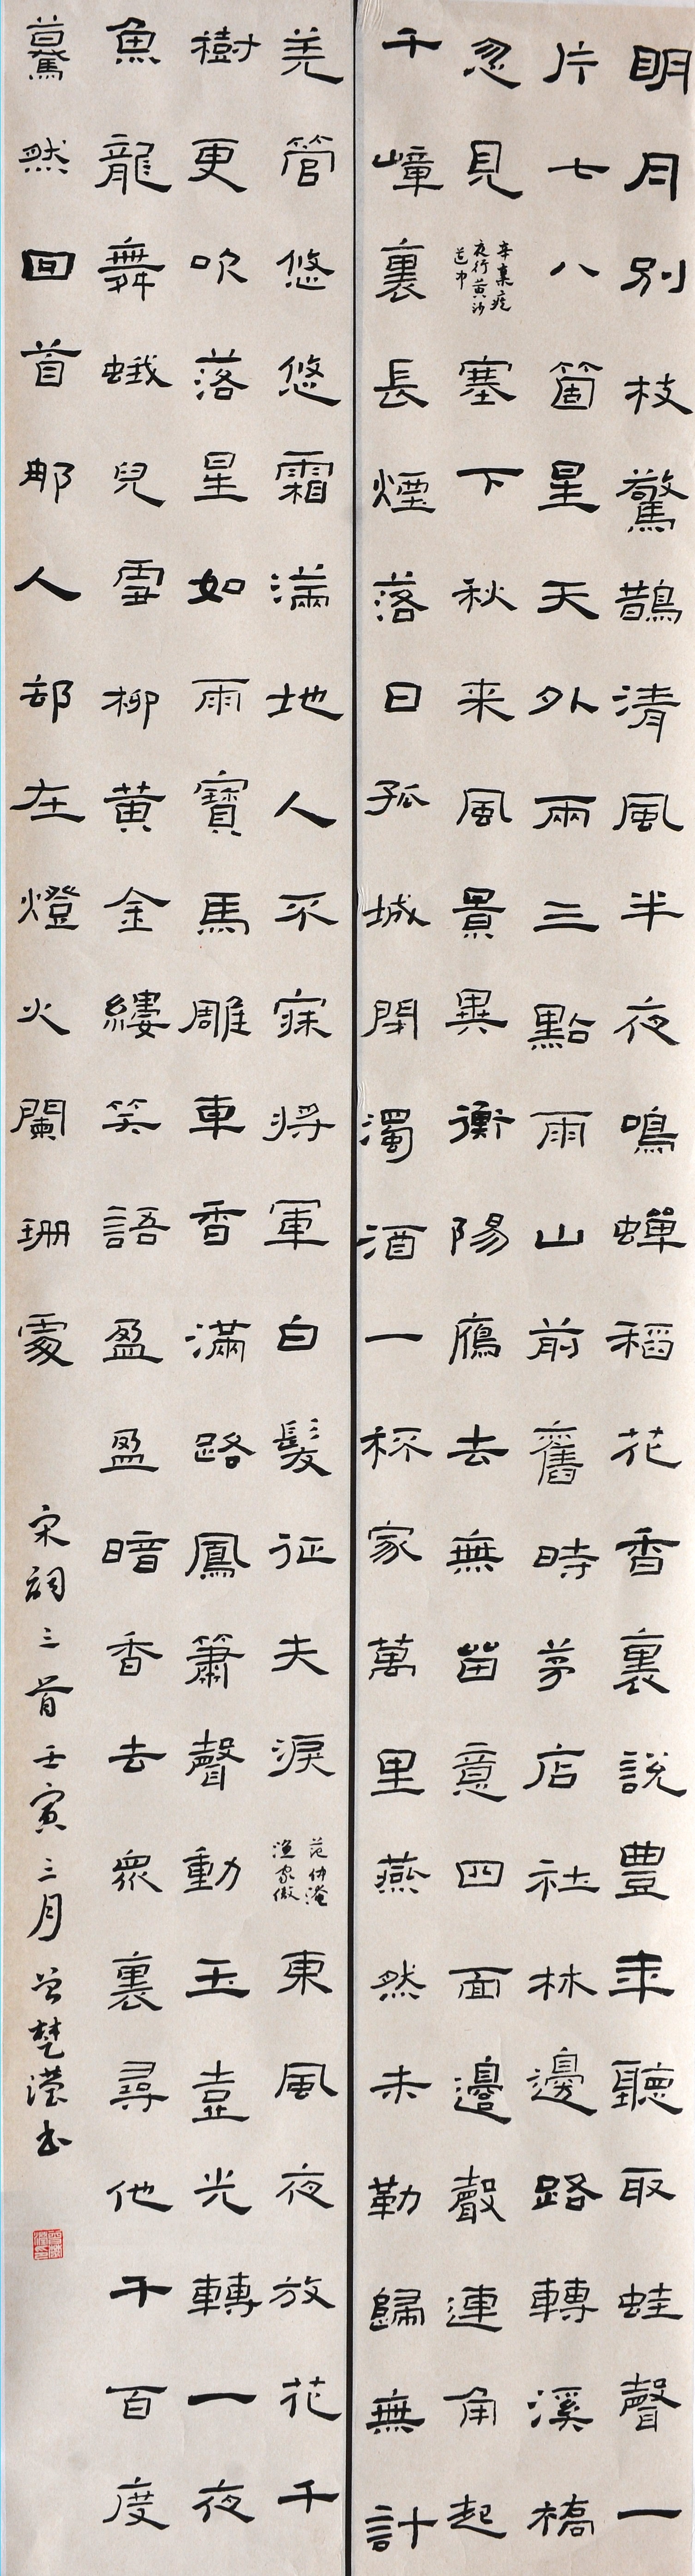 明月別枝驚鵲清風半夜鳴蟬稻花香裏說豊年聽取蛙聲一
片七八箇星天外兩三點雨山前舊時茅店社林邊路轉溪橋
忽見
辛棄疾
夜行黃沙
道中
塞下秋来風景異衡陽鴈去無留意四面邊聲連角起
千嶂裏長煙落日孤城閉濁酒一杯家萬里燕然未勒歸無計
羌管悠悠霜滿地人不寐將軍白髮征夫淚
范仲淹
漁家傲
東風夜放花千
樹更吹落星如雨寶馬雕車香滿路鳳簫聲動玉壺光轉一夜
魚龍舞蛾兒雪柳黃金縷笑語盈盈暗香去眾裏尋他千百度
驀然回首那人卻在燈火闌珊處
宋詞三首壬寅三月曾楚瀅书